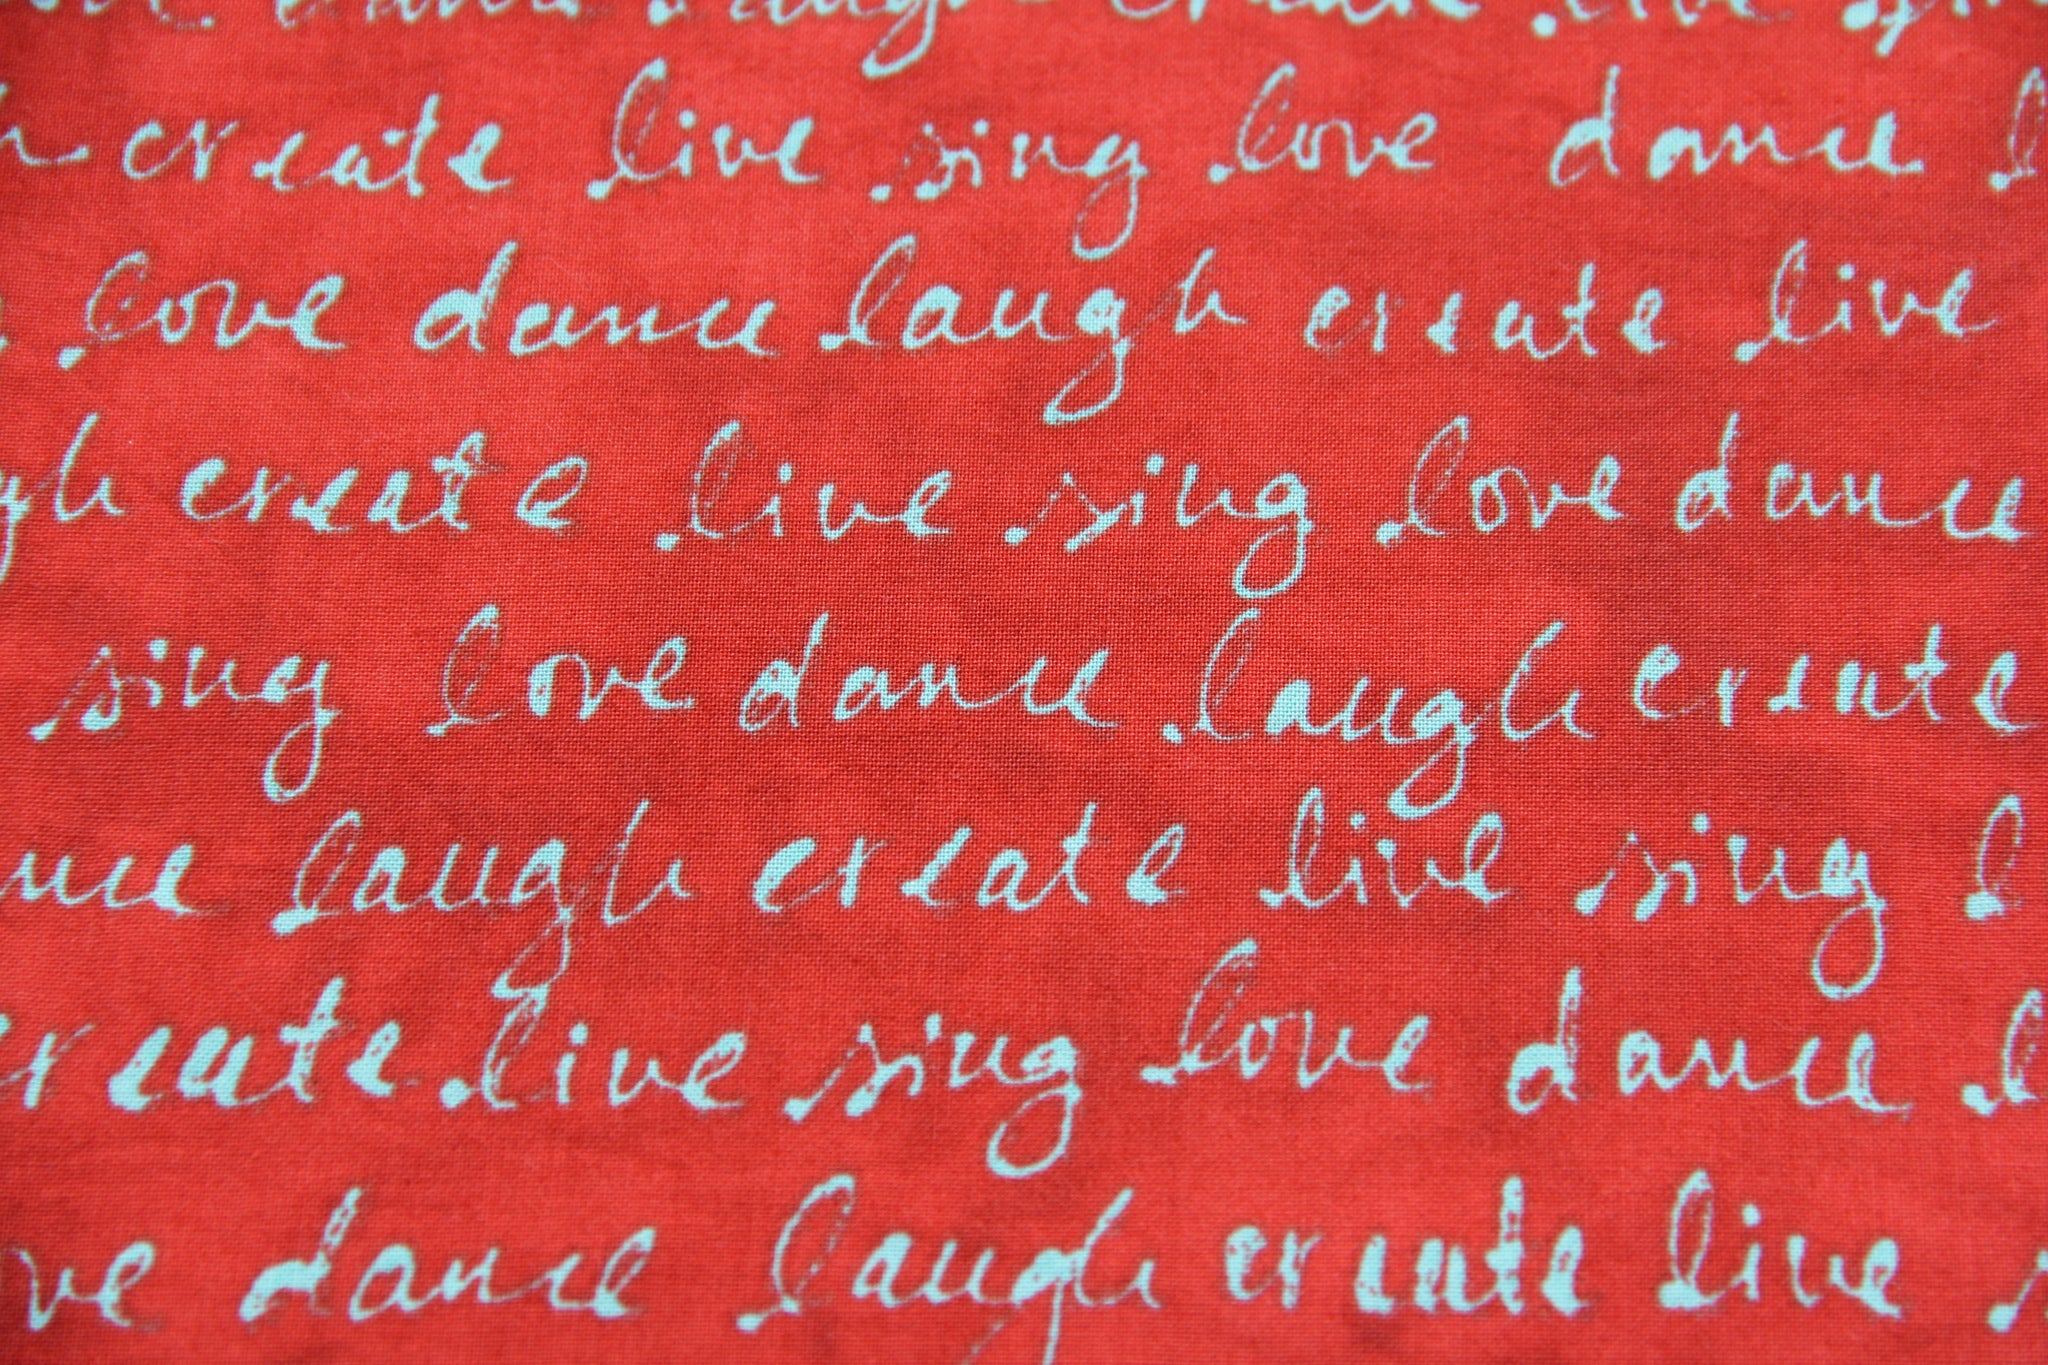 dance laugh create live
create live sing love dance
love dance laugh create live
create live sing love dance
sing love dance laugh create
laugh create live sing
create live sing love dance
dance laugh create live